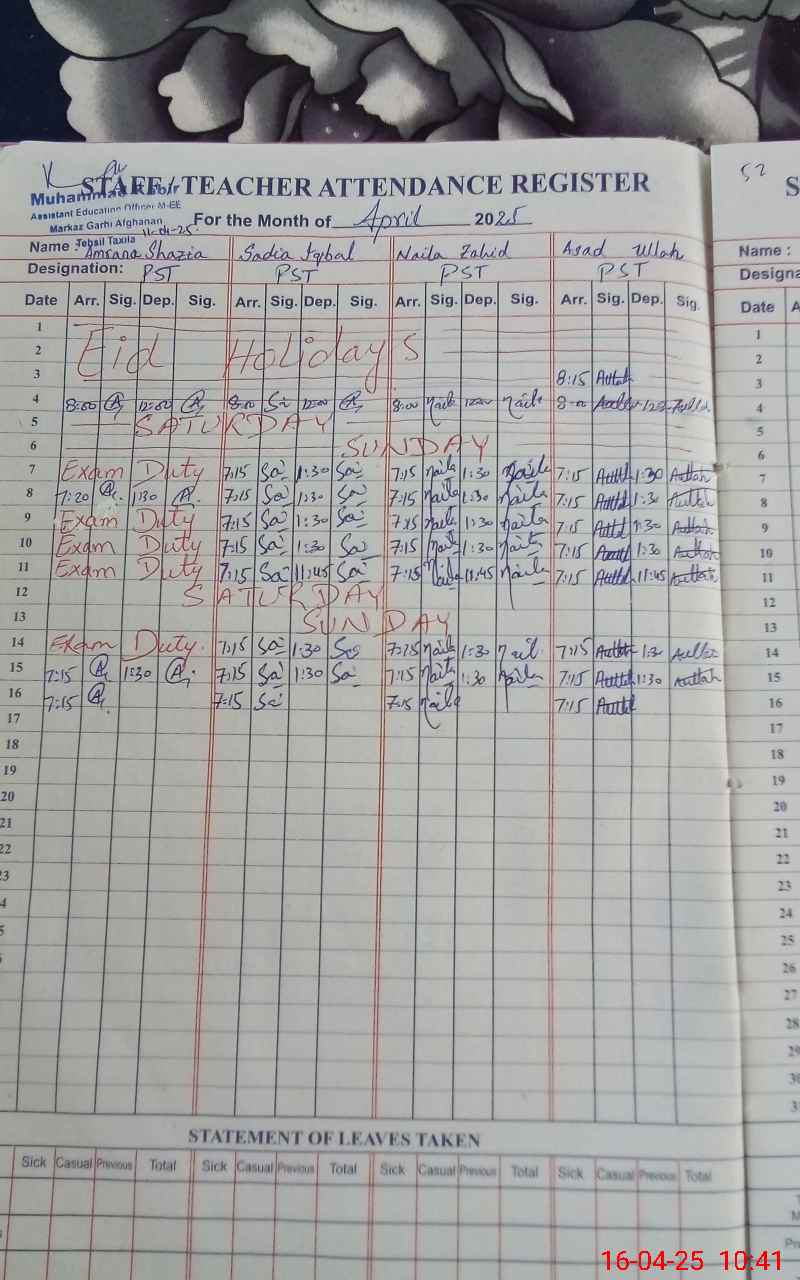 52
STAFF / TEACHER ATTENDANCE REGISTER
S
Muhammad Kabir
Assistant Education Officer M-EE
Markaz Garhi Afghanan
Tehsil Taxila 11-04-25
For the Month of April 2025
Name : Amrana Shazia Sadia Iqbal Naila Zahid Asad Ullah Name :
Designation: PST PST PST PST Designa
Date Arr. Sig. Dep. Sig. Arr. Sig. Dep. Sig. Arr. Sig. Dep. Sig. Arr. Sig. Dep. Sig. Date A
1 1
2 Eid Holidays 2
3 8:15 3
4 8:00 12:00 8:00 Sa 12:00 8:00 Naila 12:00 Naila 8:00 12:00 4
5 SATURDAY 5
6 SUNDAY 6
7 Exam Duty 7:15 Sa 1:30 Sa 7:15 Naila 1:30 Naila 7:15 1:30 7
8 7:20 1:30 7:15 Sa 1:30 Sa 7:15 Naila 1:30 Naila 7:15 1:30 8
9 Exam Duty 7:15 Sa 1:30 Sa 7:15 Naila 1:30 Naila 7:15 1:30 9
10 Exam Duty 7:15 Sa 1:30 Sa 7:15 Naila 1:30 Naila 7:15 1:30 10
11 Exam Duty 7:15 Sa 11:45 Sa 7:15 Naila 11:45 Naila 7:15 11:45 11
12 SATURDAY 12
13 SUNDAY 13
14 Exam Duty. 7:15 Sa 1:30 Sa 7:15 Naila 1:30 Naila 7:15 1:30 14
15 7:15 1:30 7:15 Sa 1:30 Sa 7:15 Naila 1:30 Naila 7:15 1:30 15
16 7:15 7:15 Sa 7:15 Naila 7:15 16
17 17
18 18
19 19
20 20
21 21
22 22
23 23
4 24
5 25
26
27
28
29
30
3
STATEMENT OF LEAVES TAKEN
Sick Casual Previous Total Sick Casual Previous Total Sick Casual Previous Total Sick Casual Previous Total
16-04-25 10:41